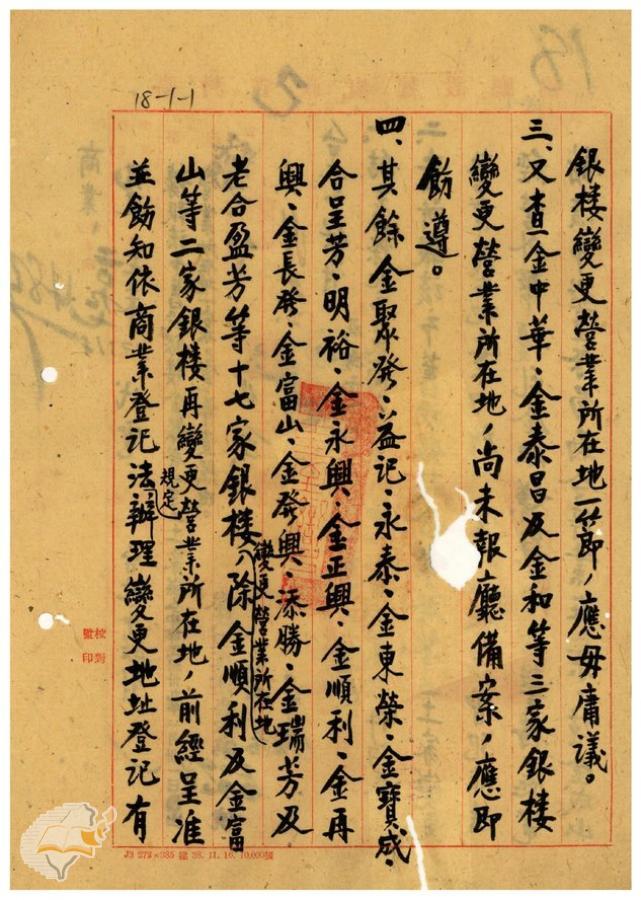 18-1-1
銀楼變更營業所在地一節，應毋庸議。
三、又查金中華、金泰昌及金和等三家銀楼
變更營業所在地，尚未報廳備案，應即
飭遵。
四、其餘金聚發、益記、永泰、金東榮、金寶成、
合呈芳、明裕、金永興、金正興、金順利、金再
興、金長發、金富山、金發興、添勝、金瑞芳及
老合盈芳等十七家銀楼變更營業所在地，除金順利及金富
山等二家銀楼再變更營業所在地，前經呈准
並飭知依商業登記法規定辦理變更地址登記有
校對
監印